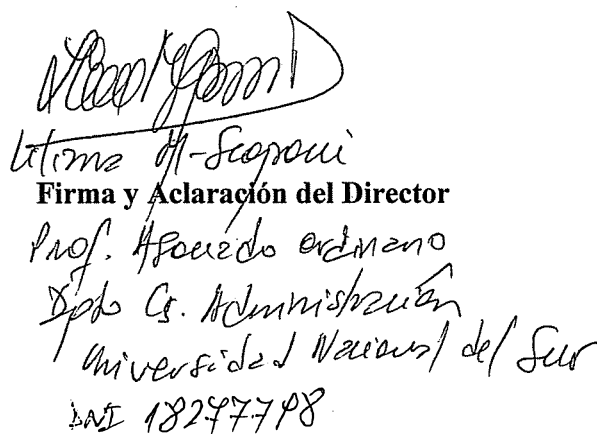 M. Scoponi
Firma y Aclaración del Director
Prof. Asociado ordinario
Dpto Cs. Administración
Universidad Nacional del Sur
DNI